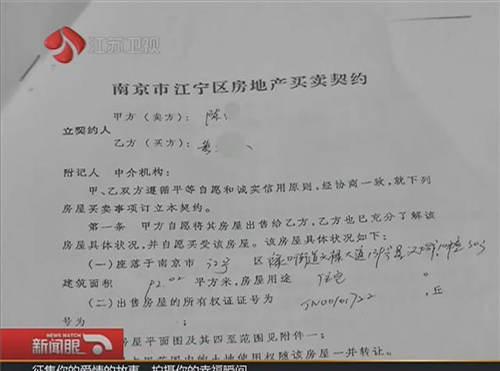 江苏卫视
南京市江宁区房地产买卖契约
甲方（卖方）：陈
立契约人
乙方（买方）：
附记人 中介机构：
甲、乙双方遵循平等自愿和诚实信用原则，经协商一致，就下列
房屋买卖事项订立本契约。
第一条 甲方自愿将其房屋出售给乙方，乙方也已充分了解该
房屋具体状况，并自愿买受该房屋。该房屋具体状况如下：
(一)座落于南京市 江宁 区
建筑面积 92.02 平方米，房屋用途 住宅 。
(二)出售房屋的所有权证证号为 JN00101722 ，丘
号为 ；
房屋平面图及其四至范围见附件一；
土地使用权随该房屋一并转让。
新闻眼
征集你的爱情的故事 拍摄你的幸福瞬间